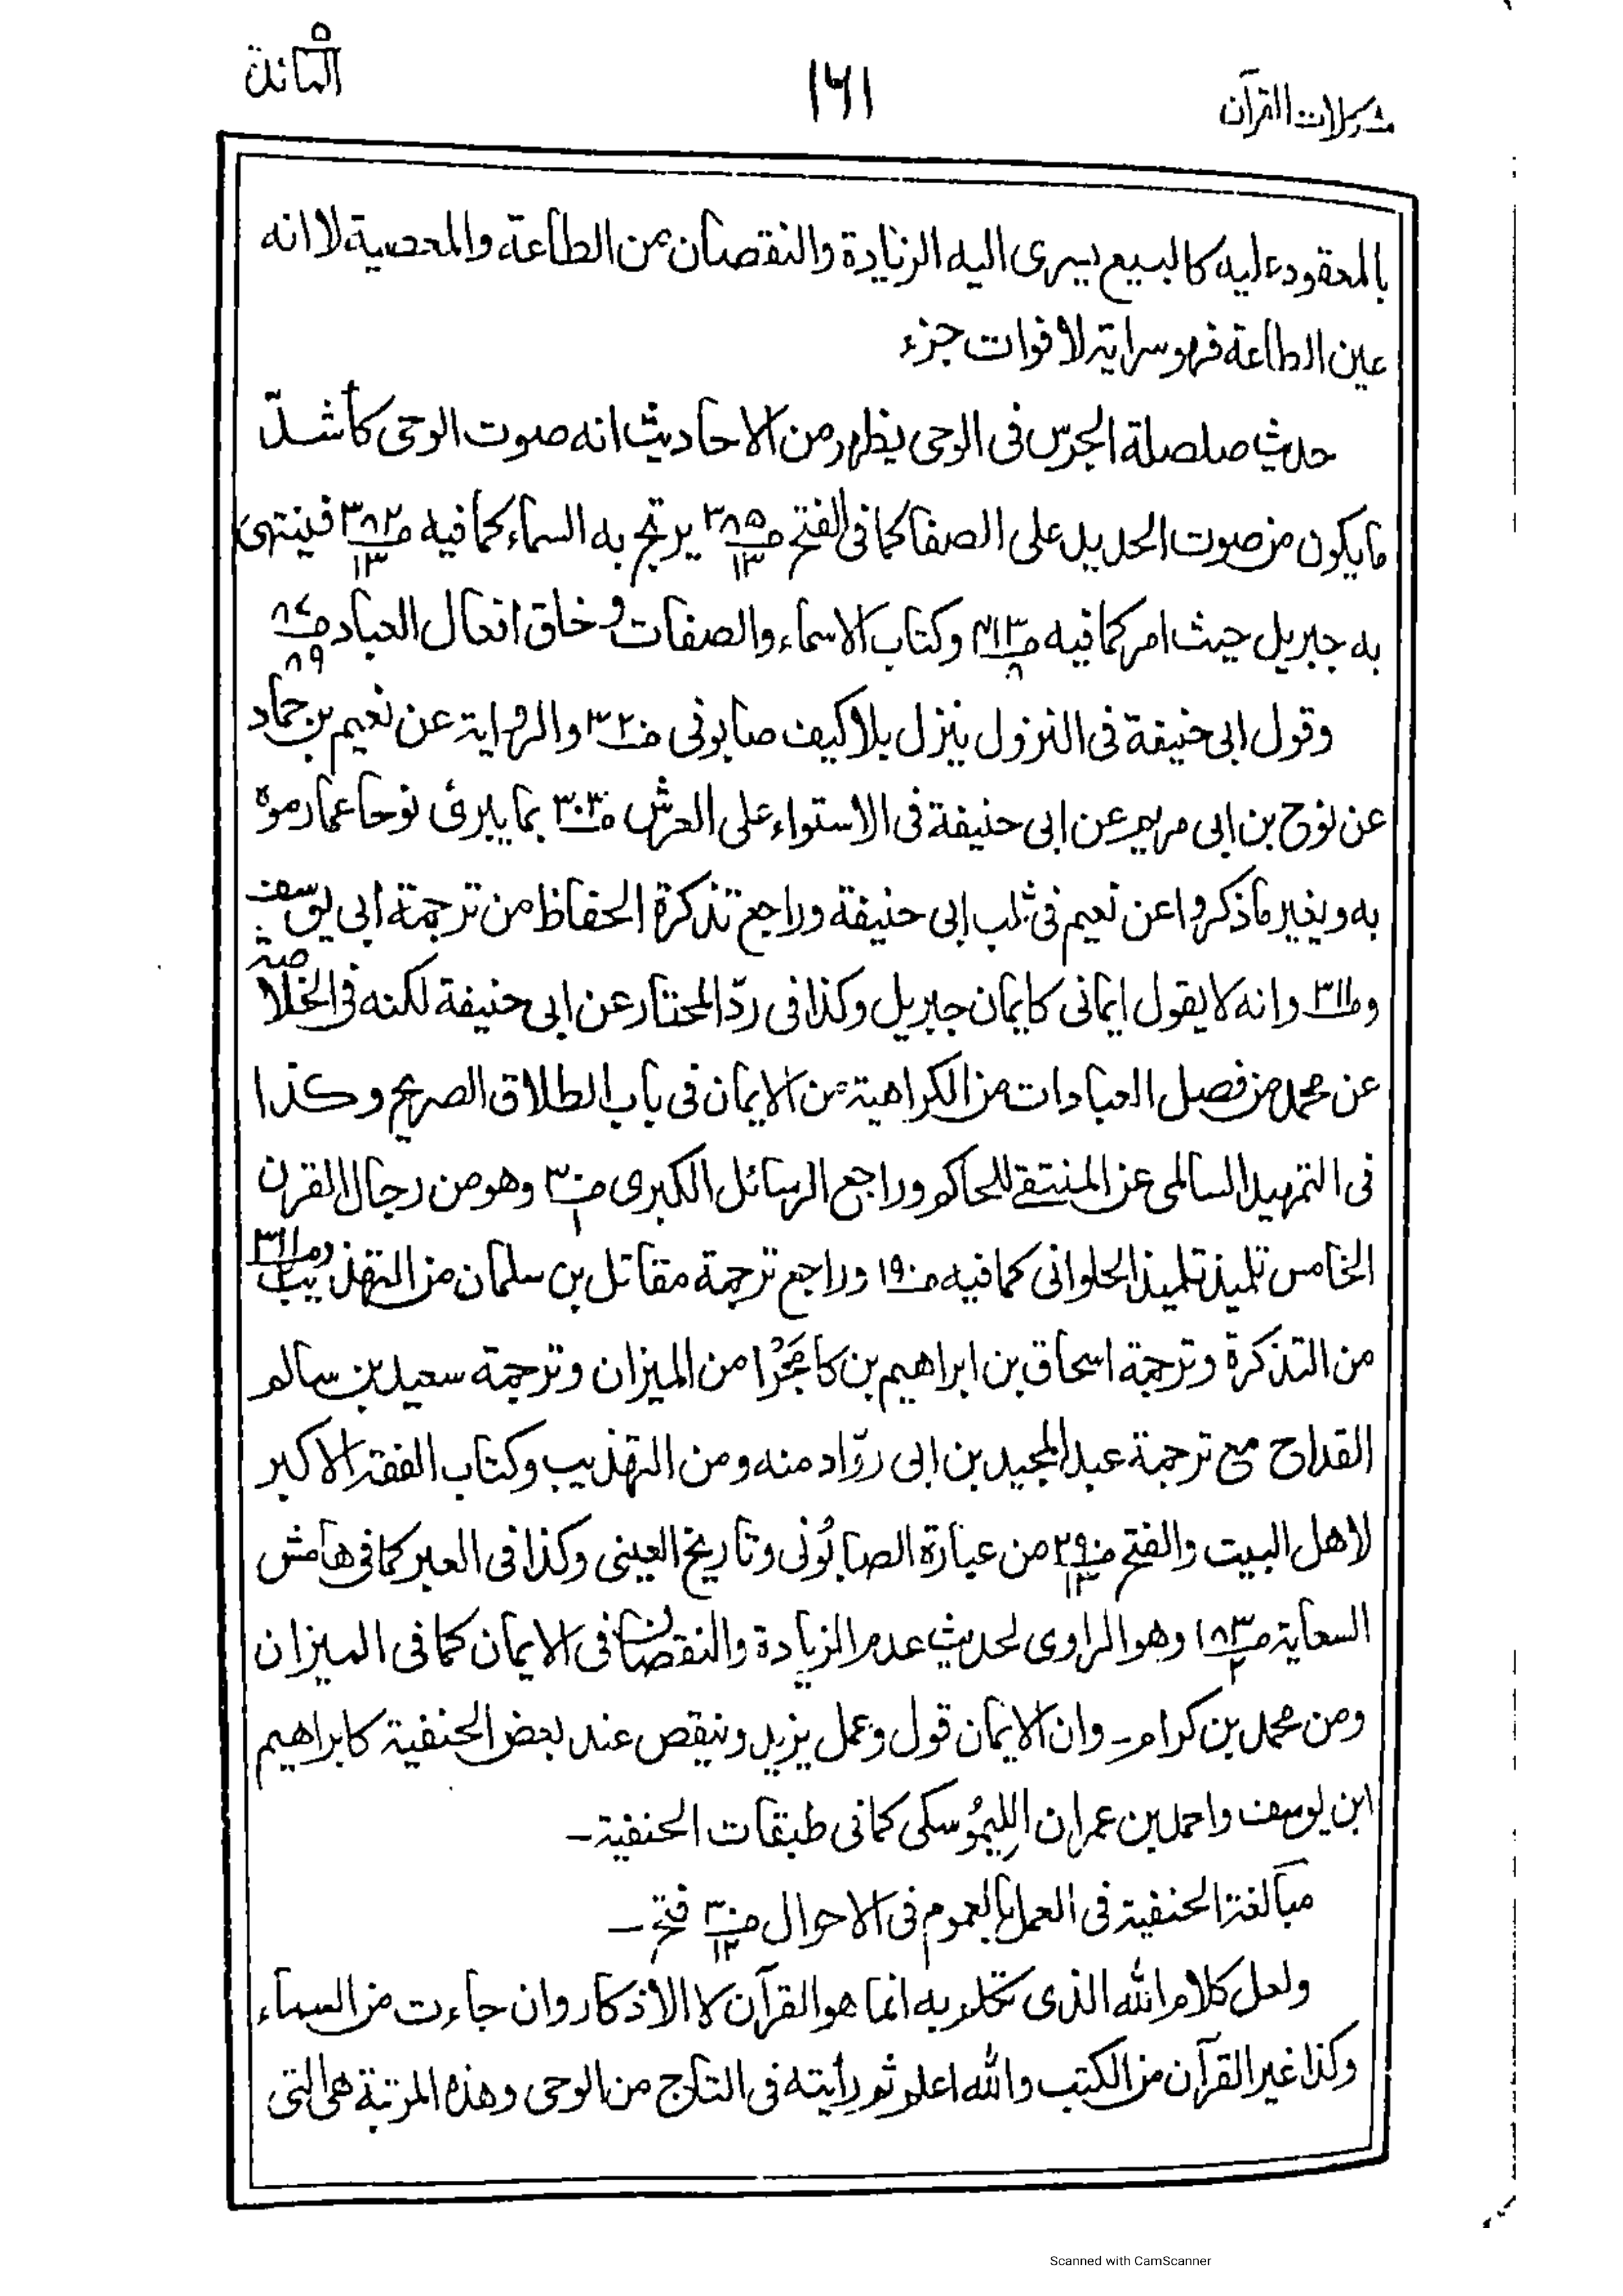 مشكلات القرآن ١٦١ المائدة
بالمعقود عليه كالبيع يسرى اليه الزيادة والنقصان من الطاعة والمعصية لا انه
عين الطاعة فهو سراية لا فوات جزء
حديث صلصلة الجرس فى الوحى يظهر من الاحاديث انه صوت الوحى كأشدّ
ما يكون من صوت الحديد على الصفا كما فى الفتح صـ٣٨٥/١٣ يرتج به السماء كما فيه صـ٣٨٢/١٣ فينتهى
به جبريل حيث امر كما فيه صـ٤١٣/٨ وكتاب الاسماء والصفات وخلق افعال العباد صـ
٨٩
وقول ابى حنيفة فى النزول ينزل بلا كيف صابونى صـ والرواية عن نعيم بن حماد
عن نوح بن ابى مريم عن ابى حنيفة فى الاستواء على العرش صـ٣٠٣ بما يبرئ نوحا عما رموه
به ويغير ما ذكروا عن نعيم فى ثلب ابى حنيفة وراجع تذكرة الحفاظ من ترجمة ابى يوسف
وصـ وانه لا يقول ايمانى كايمان جبريل وكذا فى ردّ المحتار عن ابى حنيفة لكنه فى الخلا
صة
عن محمد من فصل العبادات من الكراهية من الايمان فى باب الطلاق الصريح وكذا
فى التمهيد السالمى عن المنتقى للحاكم وراجع الرسائل الكبرى صـ وهو من رجال القرن
الخامس تلميذ تلميذ الحلوانى كما فيه صـ١٩٠ وراجع ترجمة مقاتل بن سلمان من التهذيب وصـ
من التذكرة وترجمة اسحاق بن ابراهيم بن كامَجْرا من الميزان وترجمة سعيد بن سالم
القداح مع ترجمة عبد المجيد بن ابى روّاد منه ومن التهذيب وكتاب الفقه الاكبر
لاهل البيت والفتح صـ من عبارة الصابُونى وتاريخ العينى وكذا فى العبر كما فى هامش
السعاية صـ١٨٣/٢ وهو الراوى لحديث عدم الزيادة والنقصان فى الايمان كما فى الميزان
ومن محمد بن كرام - وان الايمان قول وعمل يزيد وينقص عند بعض الحنفية كابراهيم
ابن يوسف واحمد بن عمران الليمُوسكى كما فى طبقات الحنفية -
مبالغة الحنفية فى العمل بالعموم فى الاحوال صـ فتح -
ولعل كلام الله الذى تكلم به انما هو القرآن لا الاذكار وان جاءت من السماء
وكذا غير القرآن من الكتب والله اعلم ثم رأيته فى التاج من الوحى وهذه المرتبة هى التى
Scanned with CamScanner